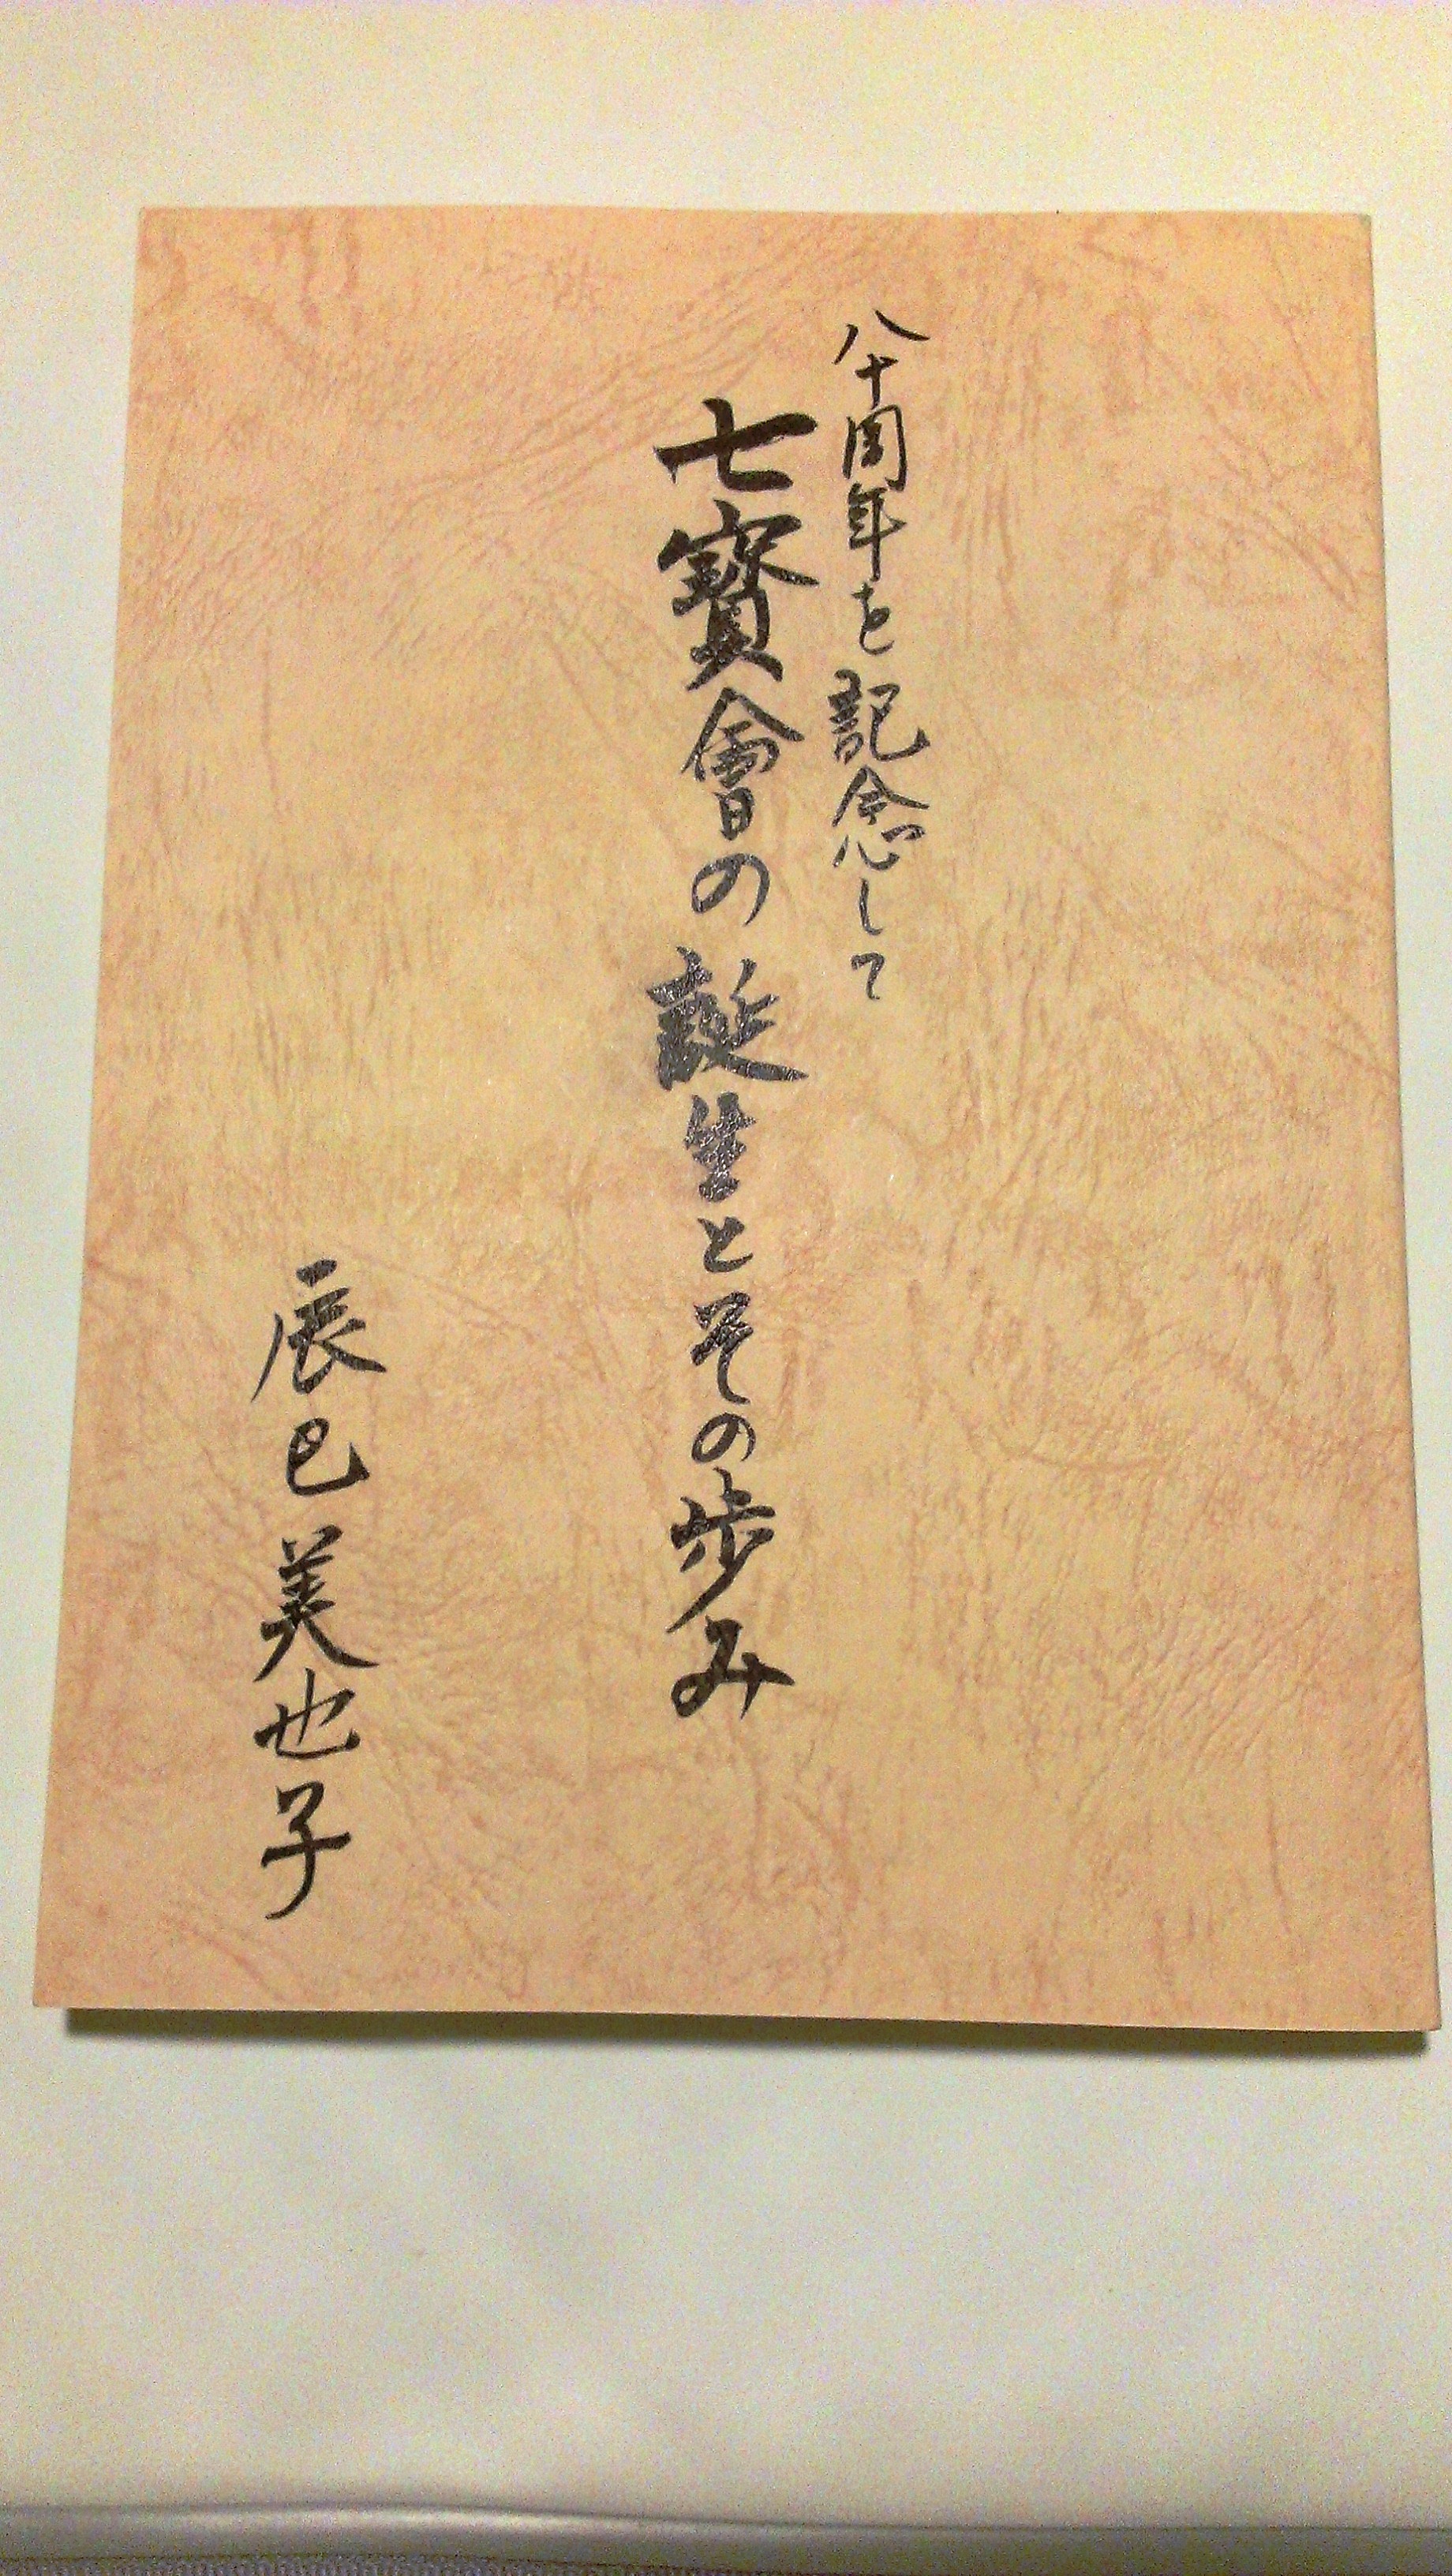 八十周年を記念して
七寳會の誕生とその歩み
辰巳美也子